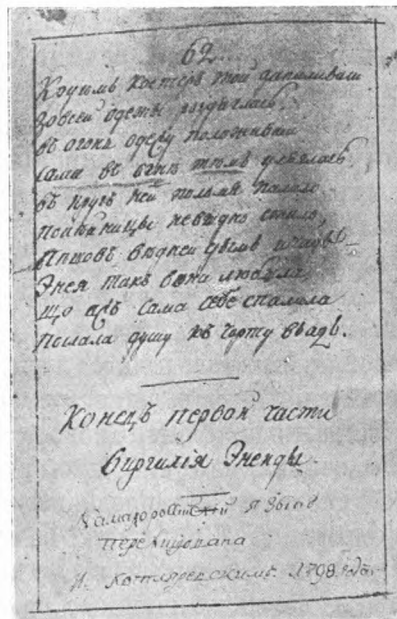 62.
Кругомъ костеръ той запаливши
Зовсей одежы роздяглась,
въ огонь одежу положивши
сама въ огнѣ тѣмъ уляглась
въ кругъ ней поломя палало
покойницы невидно стало,
Пишовъ відней дымъ и чадъ
Энея такъ вона любила
що ажъ сама себе спалила
послала душу къ чорту въадъ.
Конецъ первой части
Виргилія Энеиды.
Намалороссійскій языкъ
перелицована
И. Котляревскимъ. 1798 года.